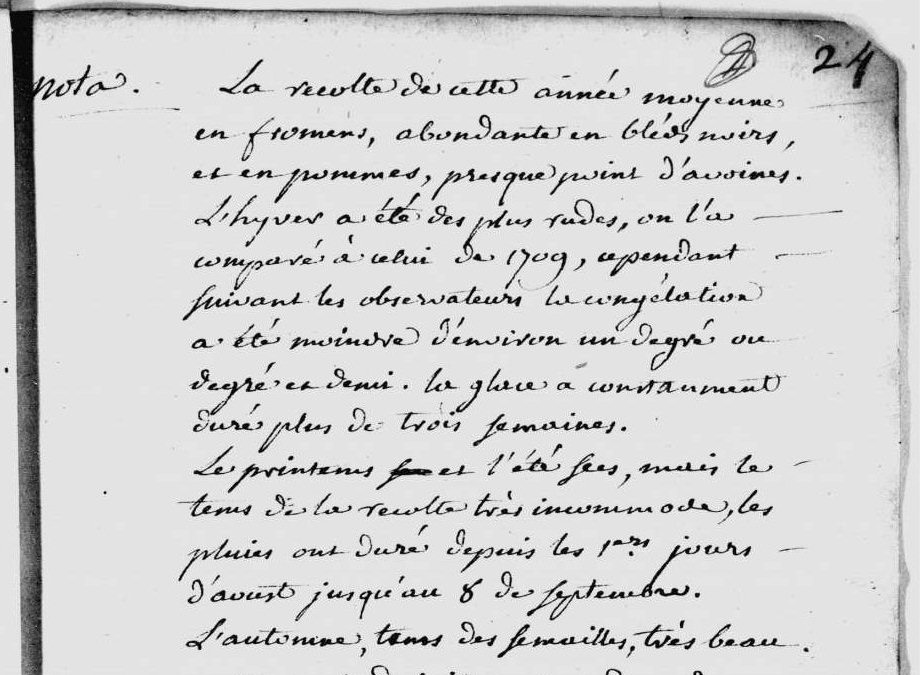 24
nota.
La recolte de cette année moyenne
en fromens, abondante en bléds noirs,
et en pommes, presque point d'avoines.
L'hyver a été des plus rudes, on l'a
comparé à celui de 1709, cependant
suivant les observateurs la congélation
a été moindre d'environ un degré ou
degré et demi. la glace a constamment
duré plus de trois semaines.
Le printems et l'été secs, mais le
tems de la recolte très incommode, les
pluies ont duré depuis les 1ers jours
d'avust jusqu'au 8 de septembre.
L'automne, tems des semailles, très beau.